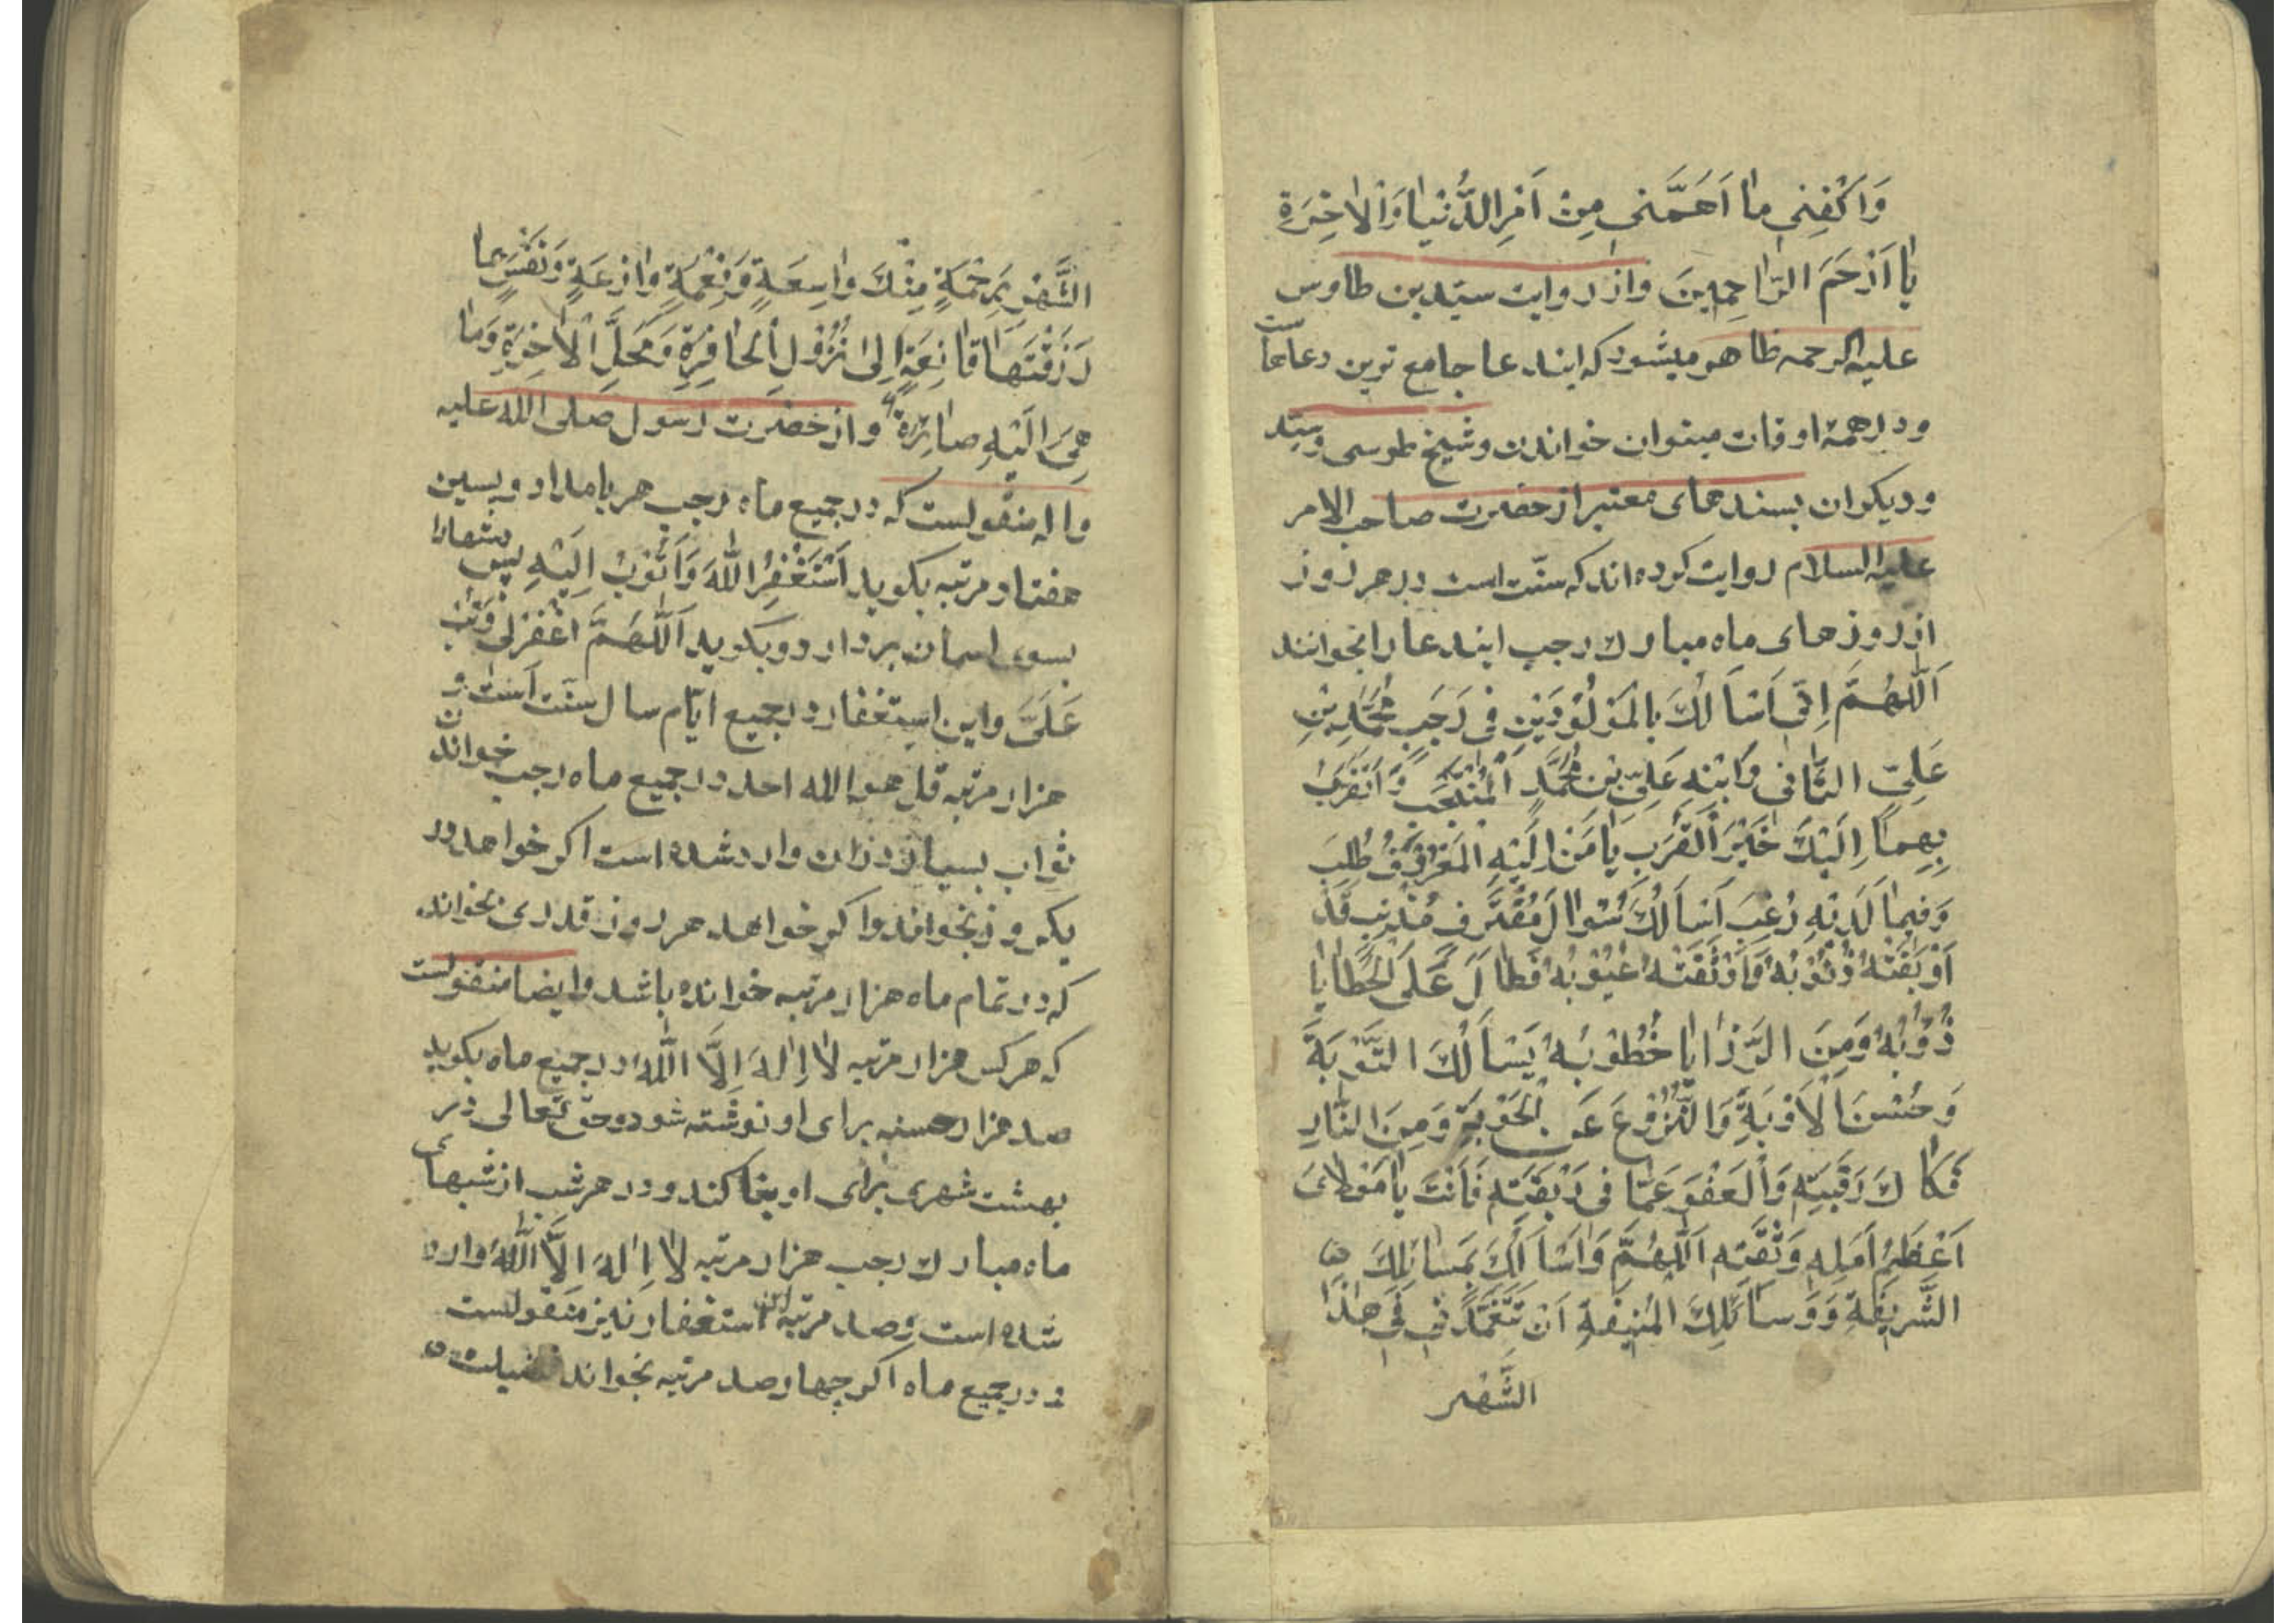 وَاكْفِنِي مٰا اَهَمَّنِي مِنْ اَمْرِ الدُّنْيٰا وَالْاٰخِرَةِ
يٰا اَرْحَمَ الرّٰاحِمِينَ واز روایت سیّد بن طاوس
علیه الرحمه ظاهر میشود که ایندعا جامع ترین دعاهاست
ودر همۀ اوقات میتوان خواندن وشیخ طوسی وسیّد
ودیکران بسندهای معتبر از حضرت صاحب الامر
علیه السلام روایت کرده اند که سنّت است در هر روز
از روزهای ماه مبارک رجب ایندعا را بخوانند
اَللّٰهُمَّ اِنّی اَسْاَلُكَ بِالْمَوْلُوْدَيْنِ فی رَجَبٍ مُحَمَّدِ بْنِ
عَلِیّ الثّٰانی وَابْنِهِ عَلِیّ بْنِ مُحَمَّدٍ الْمُنْتَجَبِ وَاَتَقَرَّبُ
بِهِمٰا اِلَيْكَ خَيْرَ الْقُرَبِ يٰا مَنْ اِلَيْهِ الْمَعْرُوْفُ طُلِبَ
وَفِيمٰا لَدَيْهِ رُغِبَ اَسْاَلُكَ سُؤٰالَ مُقْتَرِفٍ مُذْنِبٍ قَدْ
اَوْبَقَتْهُ ذُنُوْبُهُ وَاَوْثَقَتْهُ عُيُوْبُهُ فَطٰالَ عَلَى الْخَطٰايٰا
دُؤُبُهُ وَمِنَ الرَّزٰايٰا خُطُوْبُهُ يَسْاَلُكَ التَّوْبَةَ
وَحُسْنَ الْاَوْبَةِ وَالنُّزُوْعَ عَنِ الْحَوْبَةِ وَمِنَ النّٰارِ
فَكٰاكَ رَقَبَتِهِ وَالْعَفْوَ عَمّٰا فی رَبْقَتِهِ فَاَنْتَ يٰا مَوْلٰایَ
اَعْظَمُ اَمَلِهِ وَثِقَتِهِ اَللّٰهُمَّ وَاَسْاَلُكَ بِمَسٰائِلِكَ
الشَّرِيفَةِ وَوَسٰائِلِكَ الْمُنِيفَةِ اَنْ تَتَغَمَّدَنِی فی هٰذَا
الشَّهْرِ
الشَّهْرِ بِرَحْمَةٍ مِنْكَ وٰاسِعَةٍ وَنِعْمَةٍ وٰازِعَةٍ وَنَفْسٍ بِمٰا
رَزَقْتَهٰا قٰانِعَةٍ اِلٰى نُزُوْلِ الْحٰافِرَةِ وَمَحَلِّ الْاٰخِرَةِ وَمٰا
هِیَ اِلَيْهِ صٰائِرَة واز حضرت رسول صلی الله علیه
واله منقولست که در جمیع ماه رجب هر بامداد وپسین
هفتاد مرتبه بکوید اَسْتَغْفِرُ اللّٰهَ وَاَتُوْبُ اِلَيْهِ پس دستهارا
بسوی اسمان بردارد وبکوید اَللّٰهُمَّ اغْفِرْلی وَتُبْ
عَلَیَّ واین استغفار در جمیع ایّام سال سنّت است و
هزار مرتبه قل هو الله احد در جمیع ماه رجب خواندن
ثواب بسیار در ان وارد شده است اکر خواهد در
یکروز بخواند واکر خواهد هر روز قدری بخواند
که در تمام ماه هزار مرتبه خوانده باشد وایضا منقولست
که هر کس هزار مرتبه لٰا اِلٰهَ اِلَّا اللّٰهُ در جمیع ماه بکوید
صد هزار حسنه برای او نوشته شود وحق تعالی در
بهشت شهری برای او بنا کند ودر هر شب از شبهای
ماه مبارک رجب هزار مرتبه لٰا اِلٰهَ اِلَّا اللّٰهُ وارد
شده است وصد مرتبه این استغفار نیز منقولست
ودر جمیع ماه اکر چهارصد مرتبه بخواند فضیلت